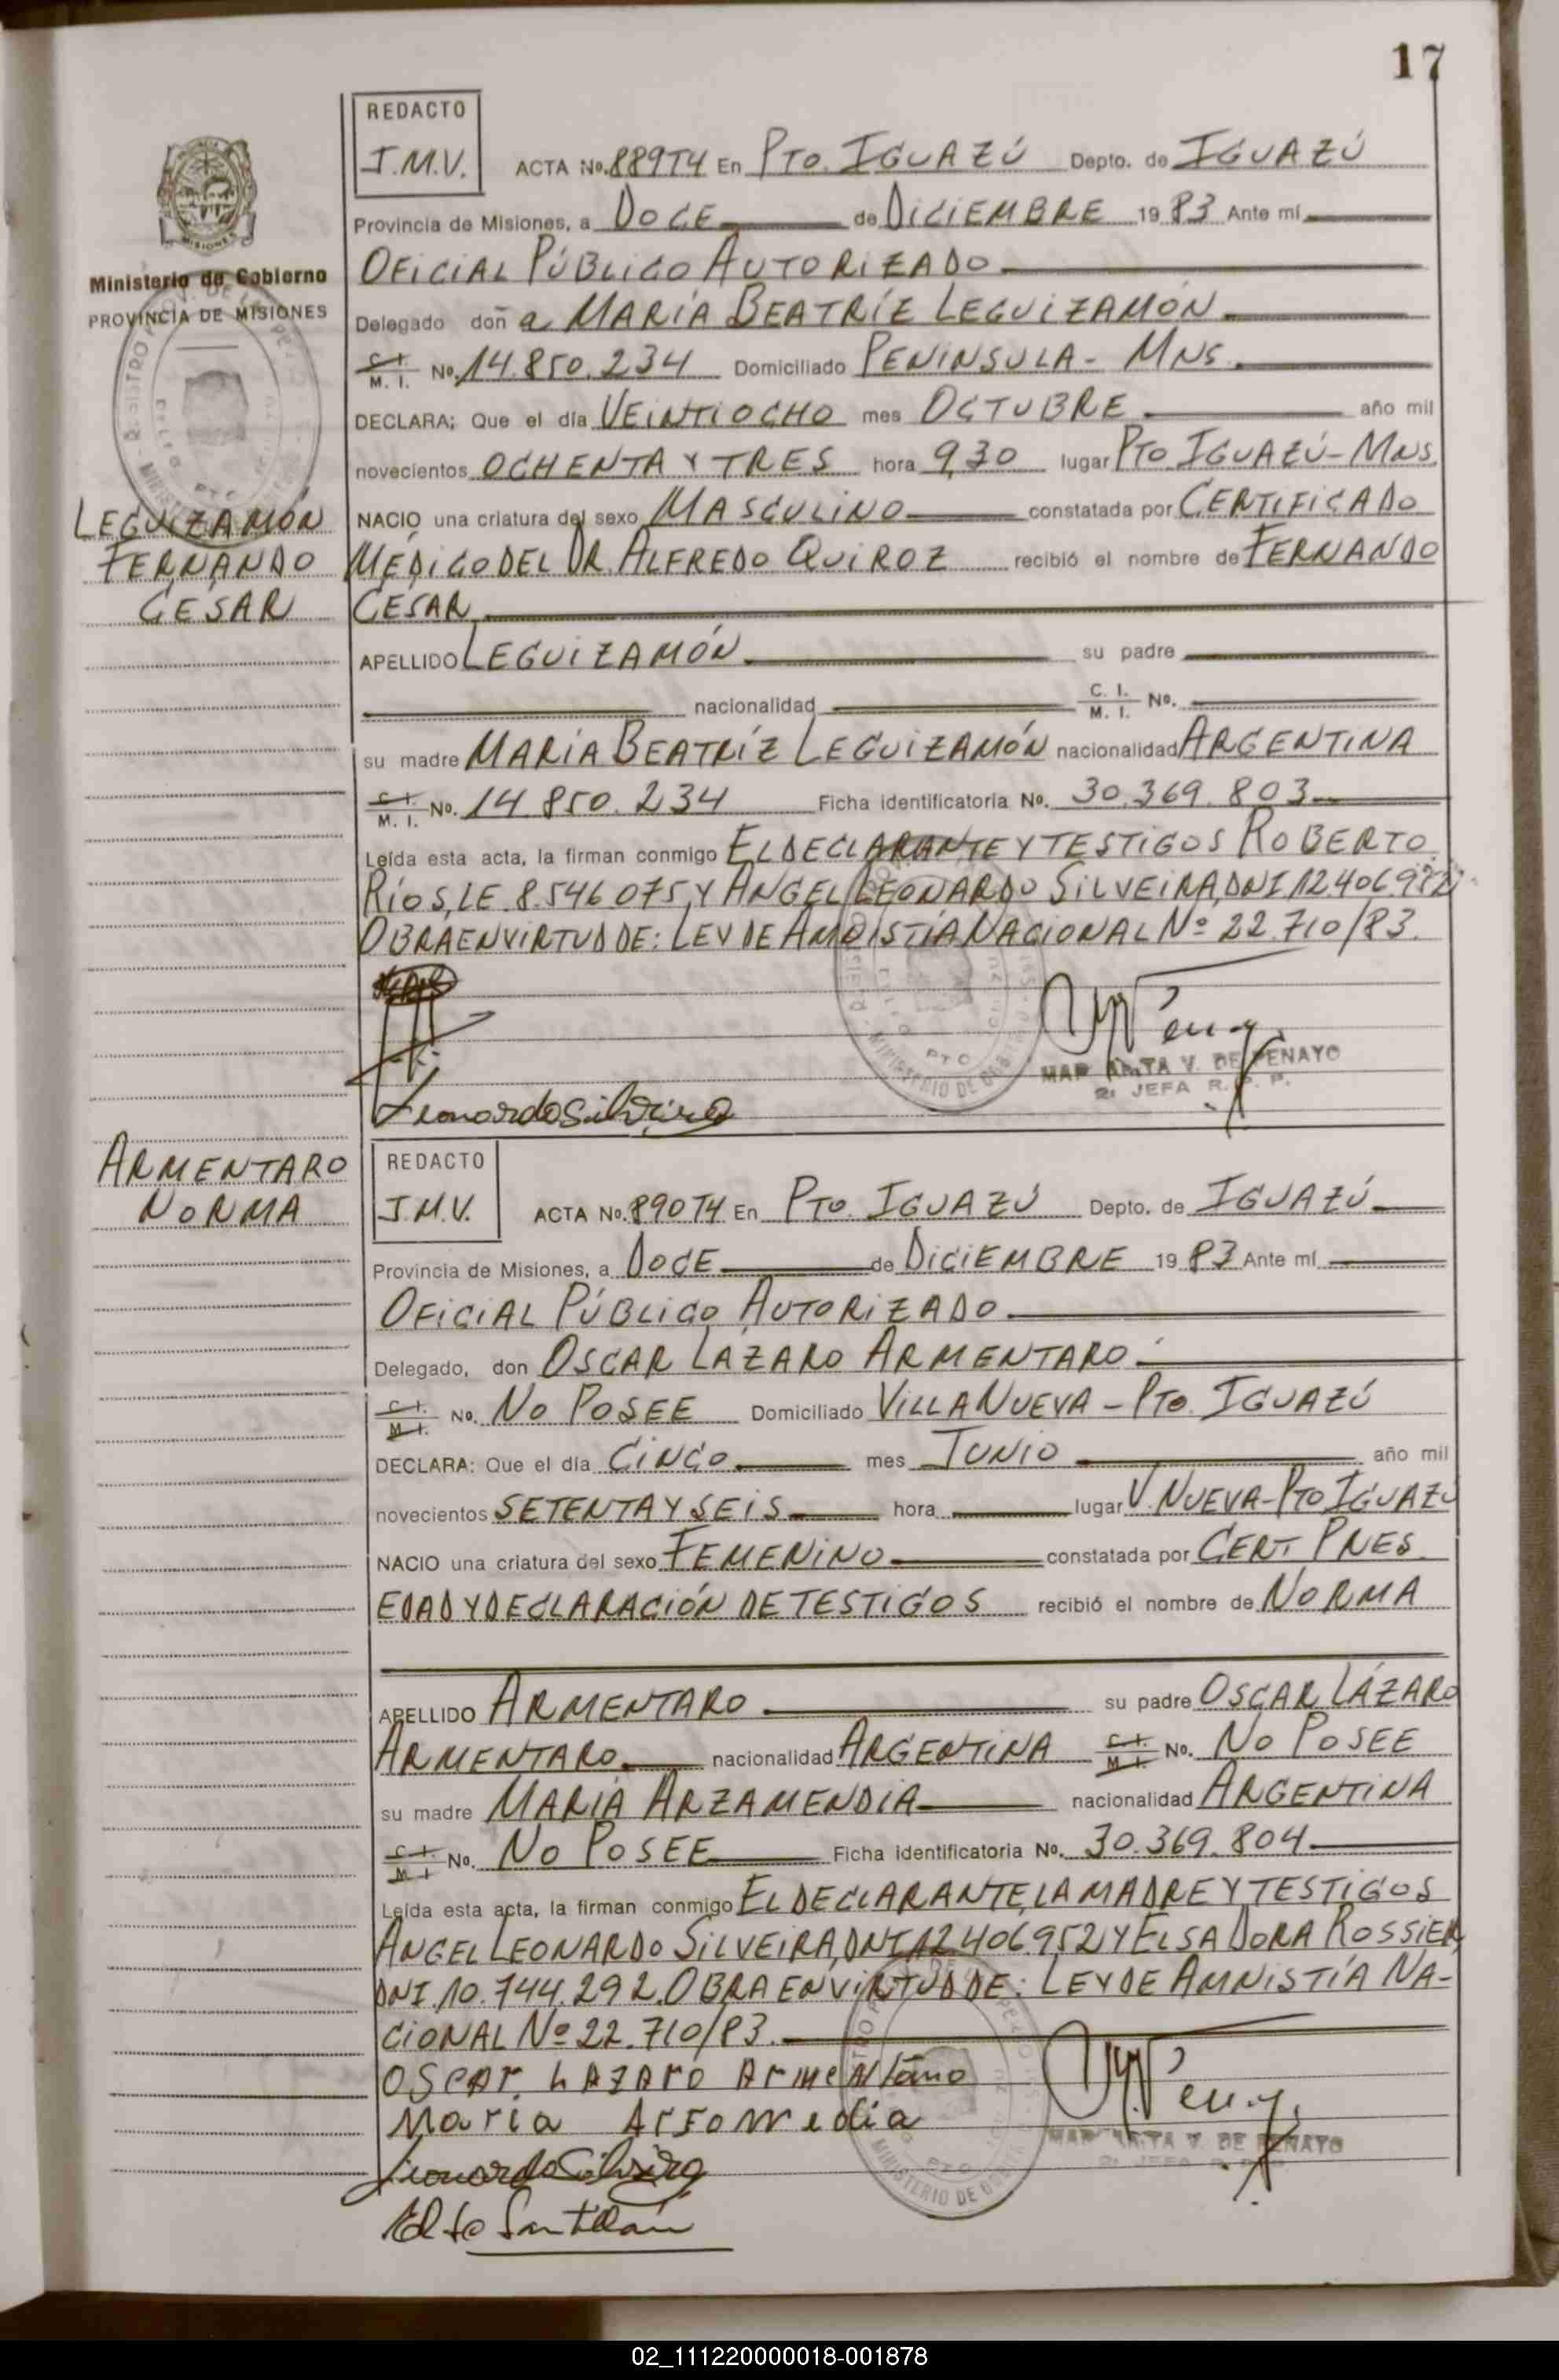 17
REDACTO
J.M.V.
ACTA No. 889T4 En PTO. IGUAZÚ Depto. de IGUAZÚ
Provincia de Misiones, a DOCE de DICIEMBRE 19 83 Ante mí
OFICIAL PÚBLICO AUTORIZADO
Ministerio de Gobierno
PROVINCIA DE MISIONES
Delegado doña MARÍA BEATRÍZ LEGUIZAMÓN
C. I. M. I. No. 14.850.234 Domiciliado PENINSULA - MNS.
DECLARA; Que el día VEINTIOCHO mes OCTUBRE año mil
novecientos OCHENTA Y TRES hora 9,30 lugar PTO. IGUAZÚ - MNS.
LEGUIZAMÓN
FERNANDO
CESAR
NACIO una criatura del sexo MASCULINO constatada por CERTIFICADO
MÉDICO DEL DR. ALFREDO QUIROZ recibió el nombre de FERNANDO
CESAR
APELLIDO LEGUIZAMÓN su padre
nacionalidad C. I. M. I. No.
su madre MARÍA BEATRÍZ LEGUIZAMÓN nacionalidad ARGENTINA
C. I. M. I. No. 14.850.234 Ficha identificatoria No. 30.369.803
Leída esta acta, la firman conmigo EL DECLARANTE Y TESTIGOS ROBERTO
RÍOS, LE. 8.546.075 Y ANGEL LEONARDO SILVEIRA, DNI 12.406.952
OBRA EN VIRTUD DE: LEY DE AMNISTÍA NACIONAL Nº 22.710/83.
Leonardo Silveira
MARGARITA V. DE PENAYO
2ª JEFA R. P. P.
ARMENTARO
NORMA
REDACTO
J.M.V.
ACTA No. 890T4 En PTO. IGUAZÚ Depto. de IGUAZÚ
Provincia de Misiones, a DOCE de DICIEMBRE 19 83 Ante mí
OFICIAL PÚBLICO AUTORIZADO
Delegado, don OSCAR LAZARO ARMENTARO
C. I. M. I. No. NO POSEE Domiciliado VILLA NUEVA - PTO. IGUAZÚ
DECLARA: Que el día CINCO mes JUNIO año mil
novecientos SETENTA Y SEIS hora lugar V. NUEVA - PTO IGUAZÚ
NACIO una criatura del sexo FEMENINO constatada por CERT. PRES.
EDAD Y DECLARACIÓN DE TESTIGOS recibió el nombre de NORMA
APELLIDO ARMENTARO su padre OSCAR LÁZARO
ARMENTARO nacionalidad ARGENTINA C. I. M. I. No. NO POSEE
su madre MARÍA ARZAMENDIA nacionalidad ARGENTINA
C. I. M. I. No. NO POSEE Ficha identificatoria No. 30.369.804
Leída esta acta, la firman conmigo EL DECLARANTE, LA MADRE Y TESTIGOS
ANGEL LEONARDO SILVEIRA, DNI 12.406.952 Y ELSA DORA ROSSIER,
DNI. 10.744.292. OBRA EN VIRTUD DE: LEY DE AMNISTÍA NA-
CIONAL Nº 22.710/83.
OSCAr LAZArO ArmeNtaro
Maria
Leonardo Silveira
V. DE PENAYO
02_111220000018-001878